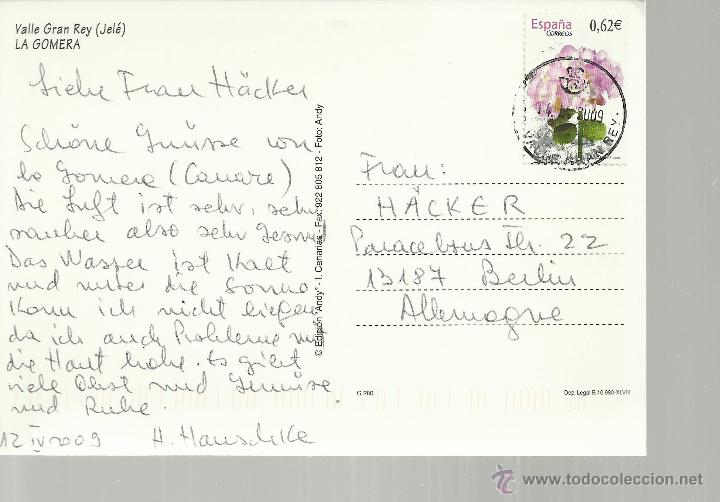 Valle Gran Rey (Jelé)
LA GOMERA
Liebe Frau Häcker
Schöne Grüsse von
la Gomera (Canare)
Die Luft ist sehr, sehr
sauber also sehr gesund
Das Wasser ist Kalt
und unter die Sonne
Kann ich nicht liegen
da ich auch Probleme mit
die Haut habe. Es giebt
viele Obst und Gemüse
und Ruhe.
12 IV 2009 H. Hauschke
© Edición "Andy" - I. Canarias - Fax: 922 805 812 - Foto: Andy
España
CORREOS
0,62€
2009
VALLE GRAN REY
Frau:
HÄCKER
Paracelsus Str. 22
13187 Berlin
Allemagne
G 280
Dep. Legal B.10.980-XLVIII
www.todocoleccion.net